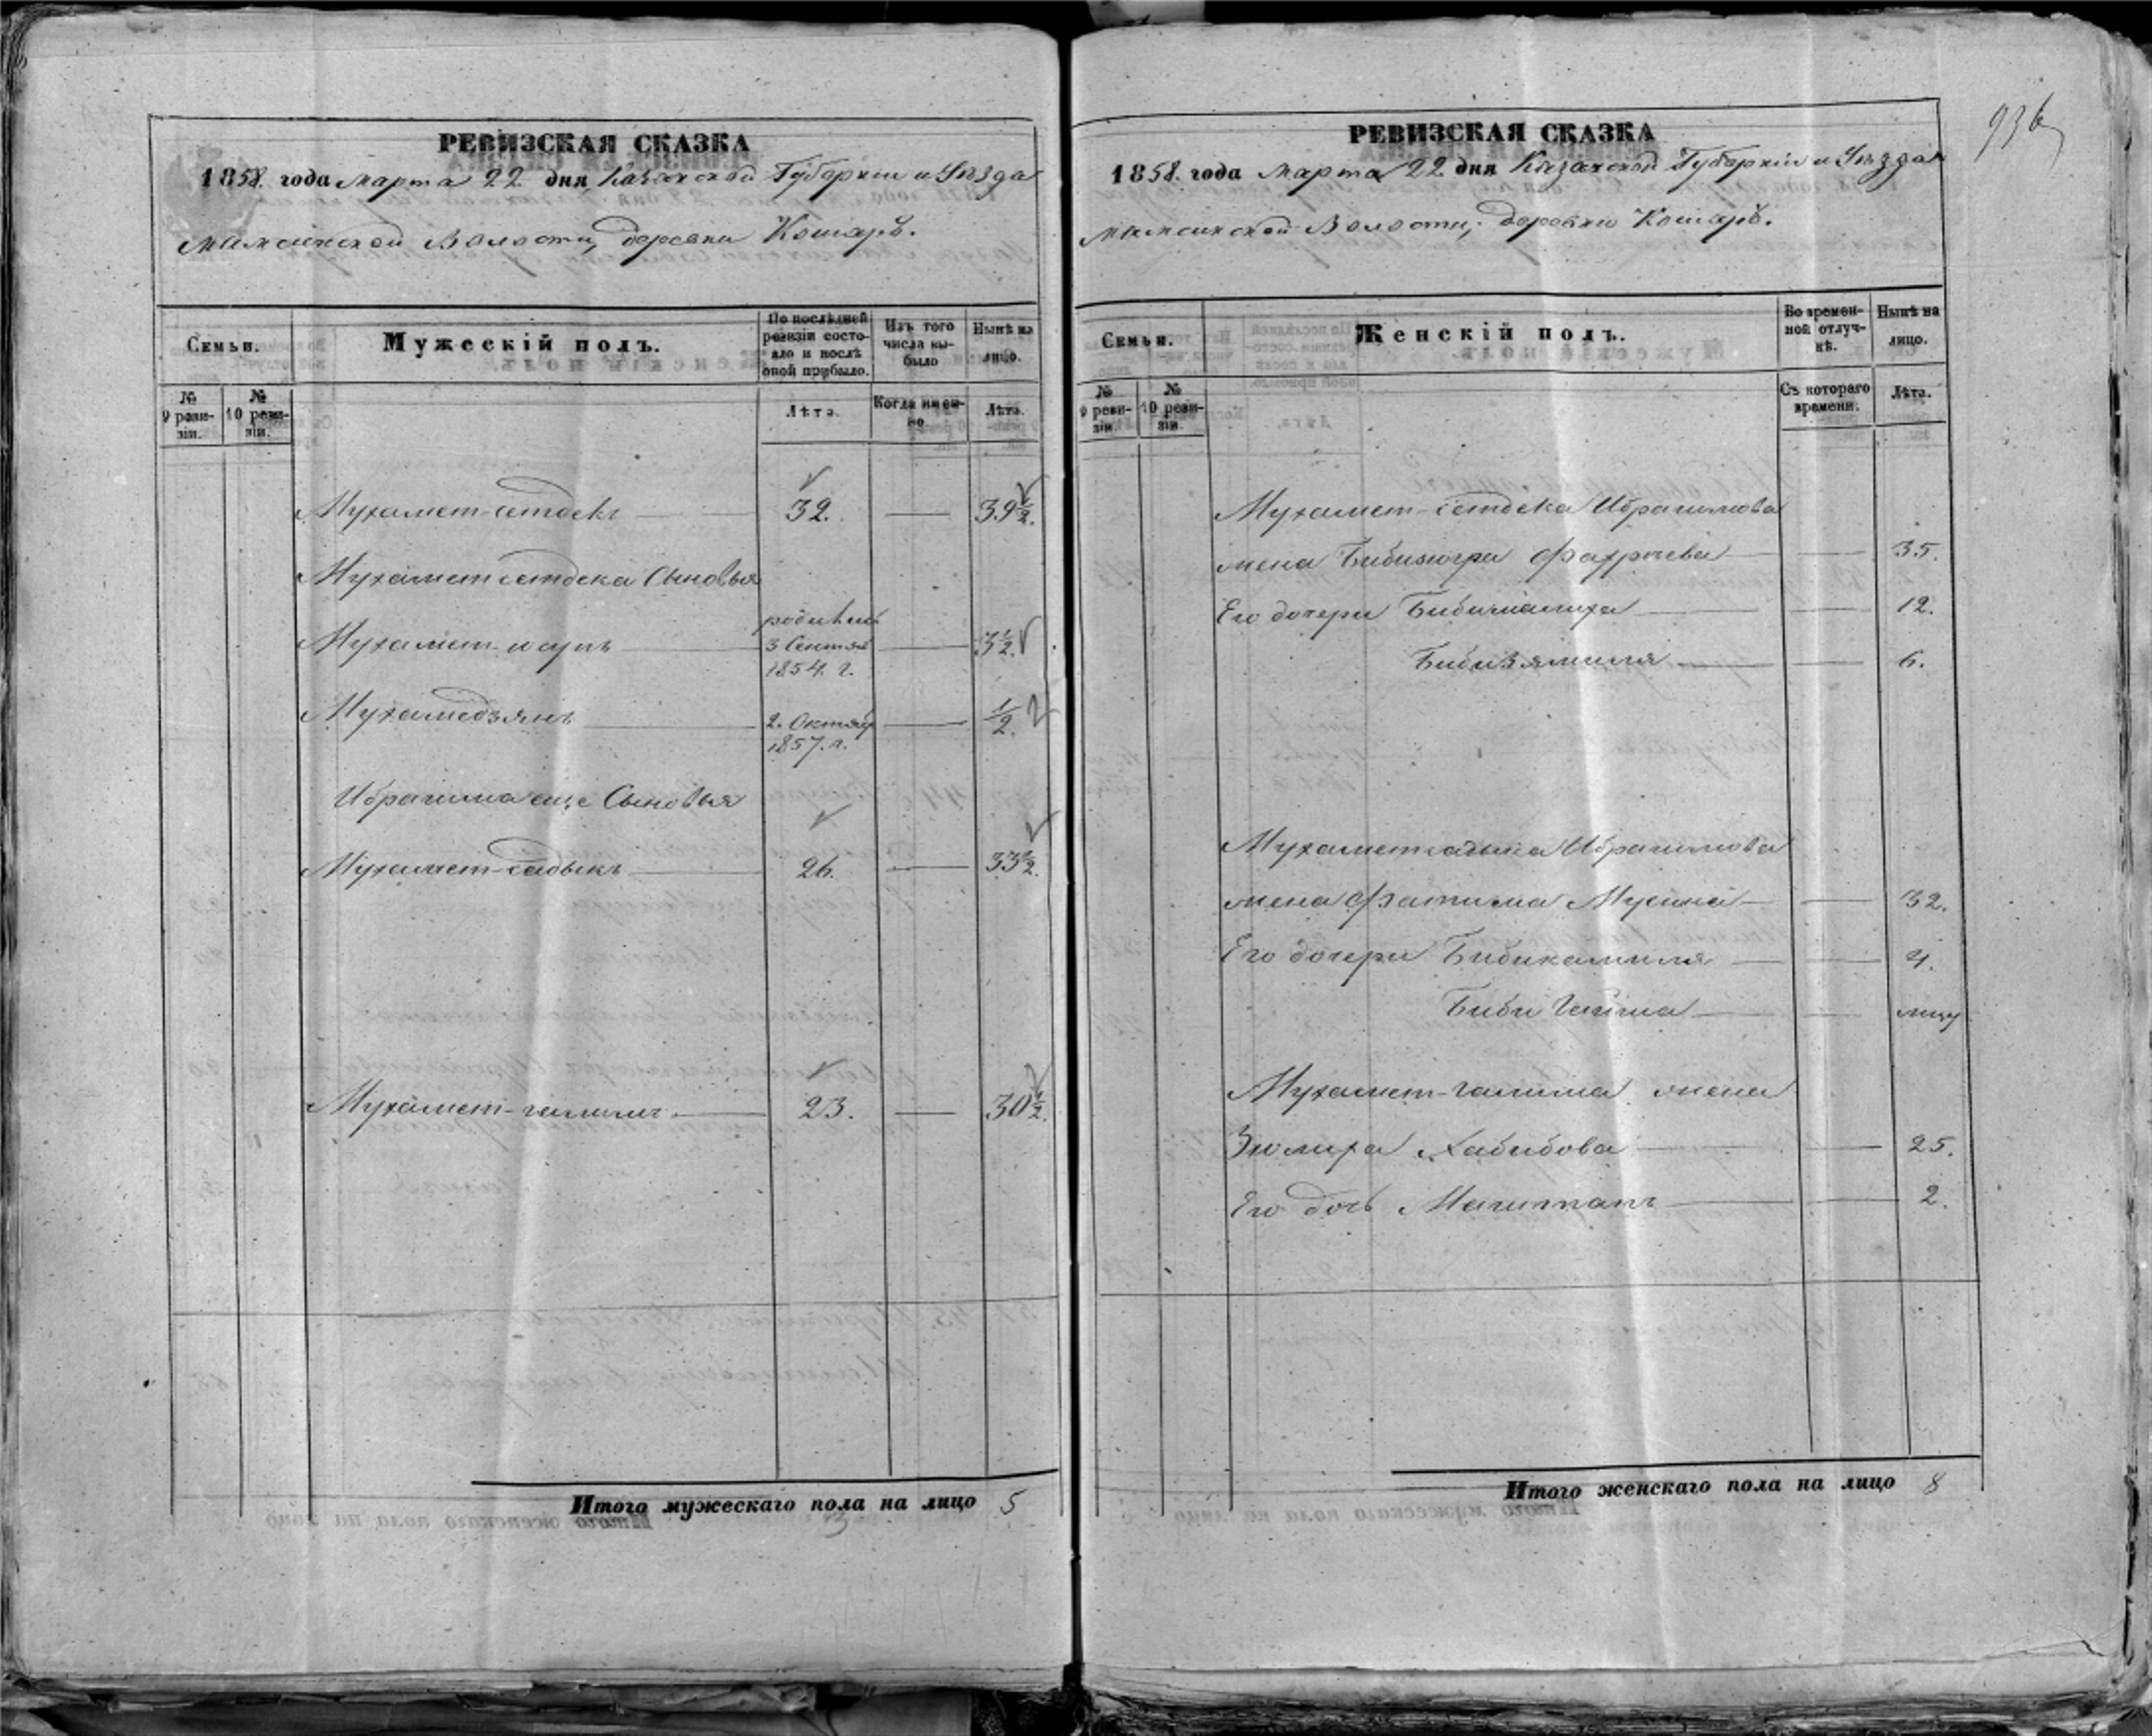 РЕВИЗСКАЯ СКАЗКА
1858. года Марта 22 дня Казанской Губернiи и Уѣзда
Мамсинской Волости, деревни Кошаръ.
Семьи.
Мужескiй полъ.
По послѣдней ревизiи состояло и послѣ оной прибыло.
Изъ того числа выбыло
Нынѣ на лицо.
№ 9 ревизiи.
№ 10 ревизiи.
Лѣта.
Когда именно.
Лѣта.
Мухамет-сетдекъ 32. 39 1/2.
Мухаметсетдека Сыновья
Мухамет-юсупъ родился 3 Сентяб 1854. г. 3 1/2.
Мухамедзянъ 2. Октяб 1857. г. 1/2.
Ибрагима еще Сыновья
Мухамет-садыкъ 26. 33 1/2.
Мухамет-галимъ 23. 30 1/2.
Итого мужескаго пола на лицо 5
936
РЕВИЗСКАЯ СКАЗКА
1858. года Марта 22 дня Казанской Губернiи и Уѣзда
Мамсинской Волости, деревни Кошаръ.
Семьи.
Женскiй полъ.
Во временной отлучкѣ.
Нынѣ на лицо.
№ 9 ревизiи.
№ 10 ревизiи.
Съ котораго времени.
Лѣта.
Мухамет-сетдека Ибрагимова
жена Бибизюгра 35.
Его дочери 12.
Бибизямиля 6.
Мухаметсадыка Ибрагимова
жена Фатима Мусина 32.
Его дочери Бибикамиля 4.
Биби
Мухамет-галима жена
Зюлиха Хабибова 25.
Его дочь 2.
Итого женскаго пола на лицо 8